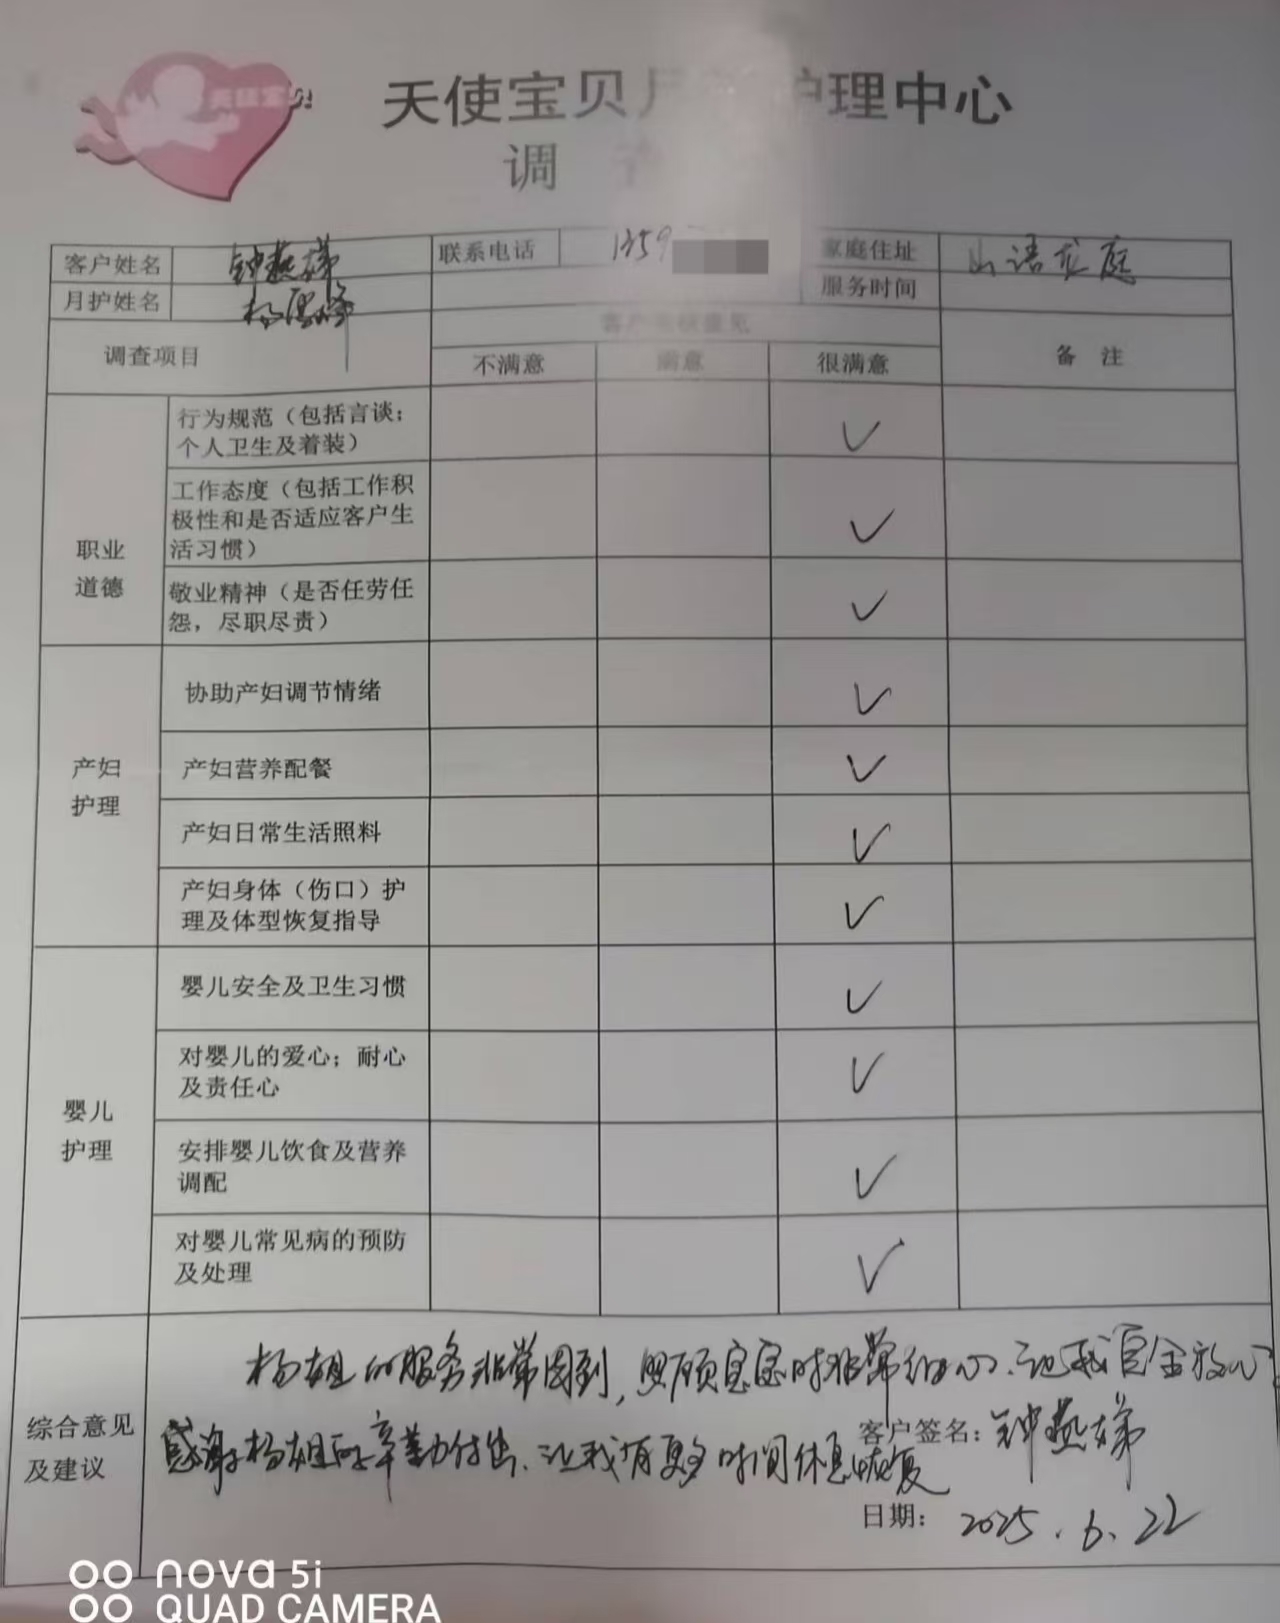 天使宝贝
天使宝贝月 护理中心
调
客户姓名 钟燕娣 联系电话 1359 家庭住址 山语龙庭
月护姓名 杨 服务时间
调查项目 不满意 满意 很满意 备 注
职业道德
行为规范（包括言谈；
个人卫生及着装） ✓
工作态度（包括工作积
极性和是否适应客户生
活习惯） ✓
敬业精神（是否任劳任
怨，尽职尽责） ✓
产妇
护理
协助产妇调节情绪 ✓
产妇营养配餐 ✓
产妇日常生活照料 ✓
产妇身体（伤口）护
理及体型恢复指导 ✓
婴儿
护理
婴儿安全及卫生习惯 ✓
对婴儿的爱心；耐心
及责任心 ✓
安排婴儿饮食及营养
调配 ✓
对婴儿常见病的预防
及处理 ✓
综合意见
及建议
杨姐的服务非常周到，照顾宝宝时非常细心、让我完全放心。
感谢杨姐的辛勤付出、让我有更多时间休息恢复
客户签名：钟燕娣
日期：2025.6.22
nova 5i
QUAD CAMERA